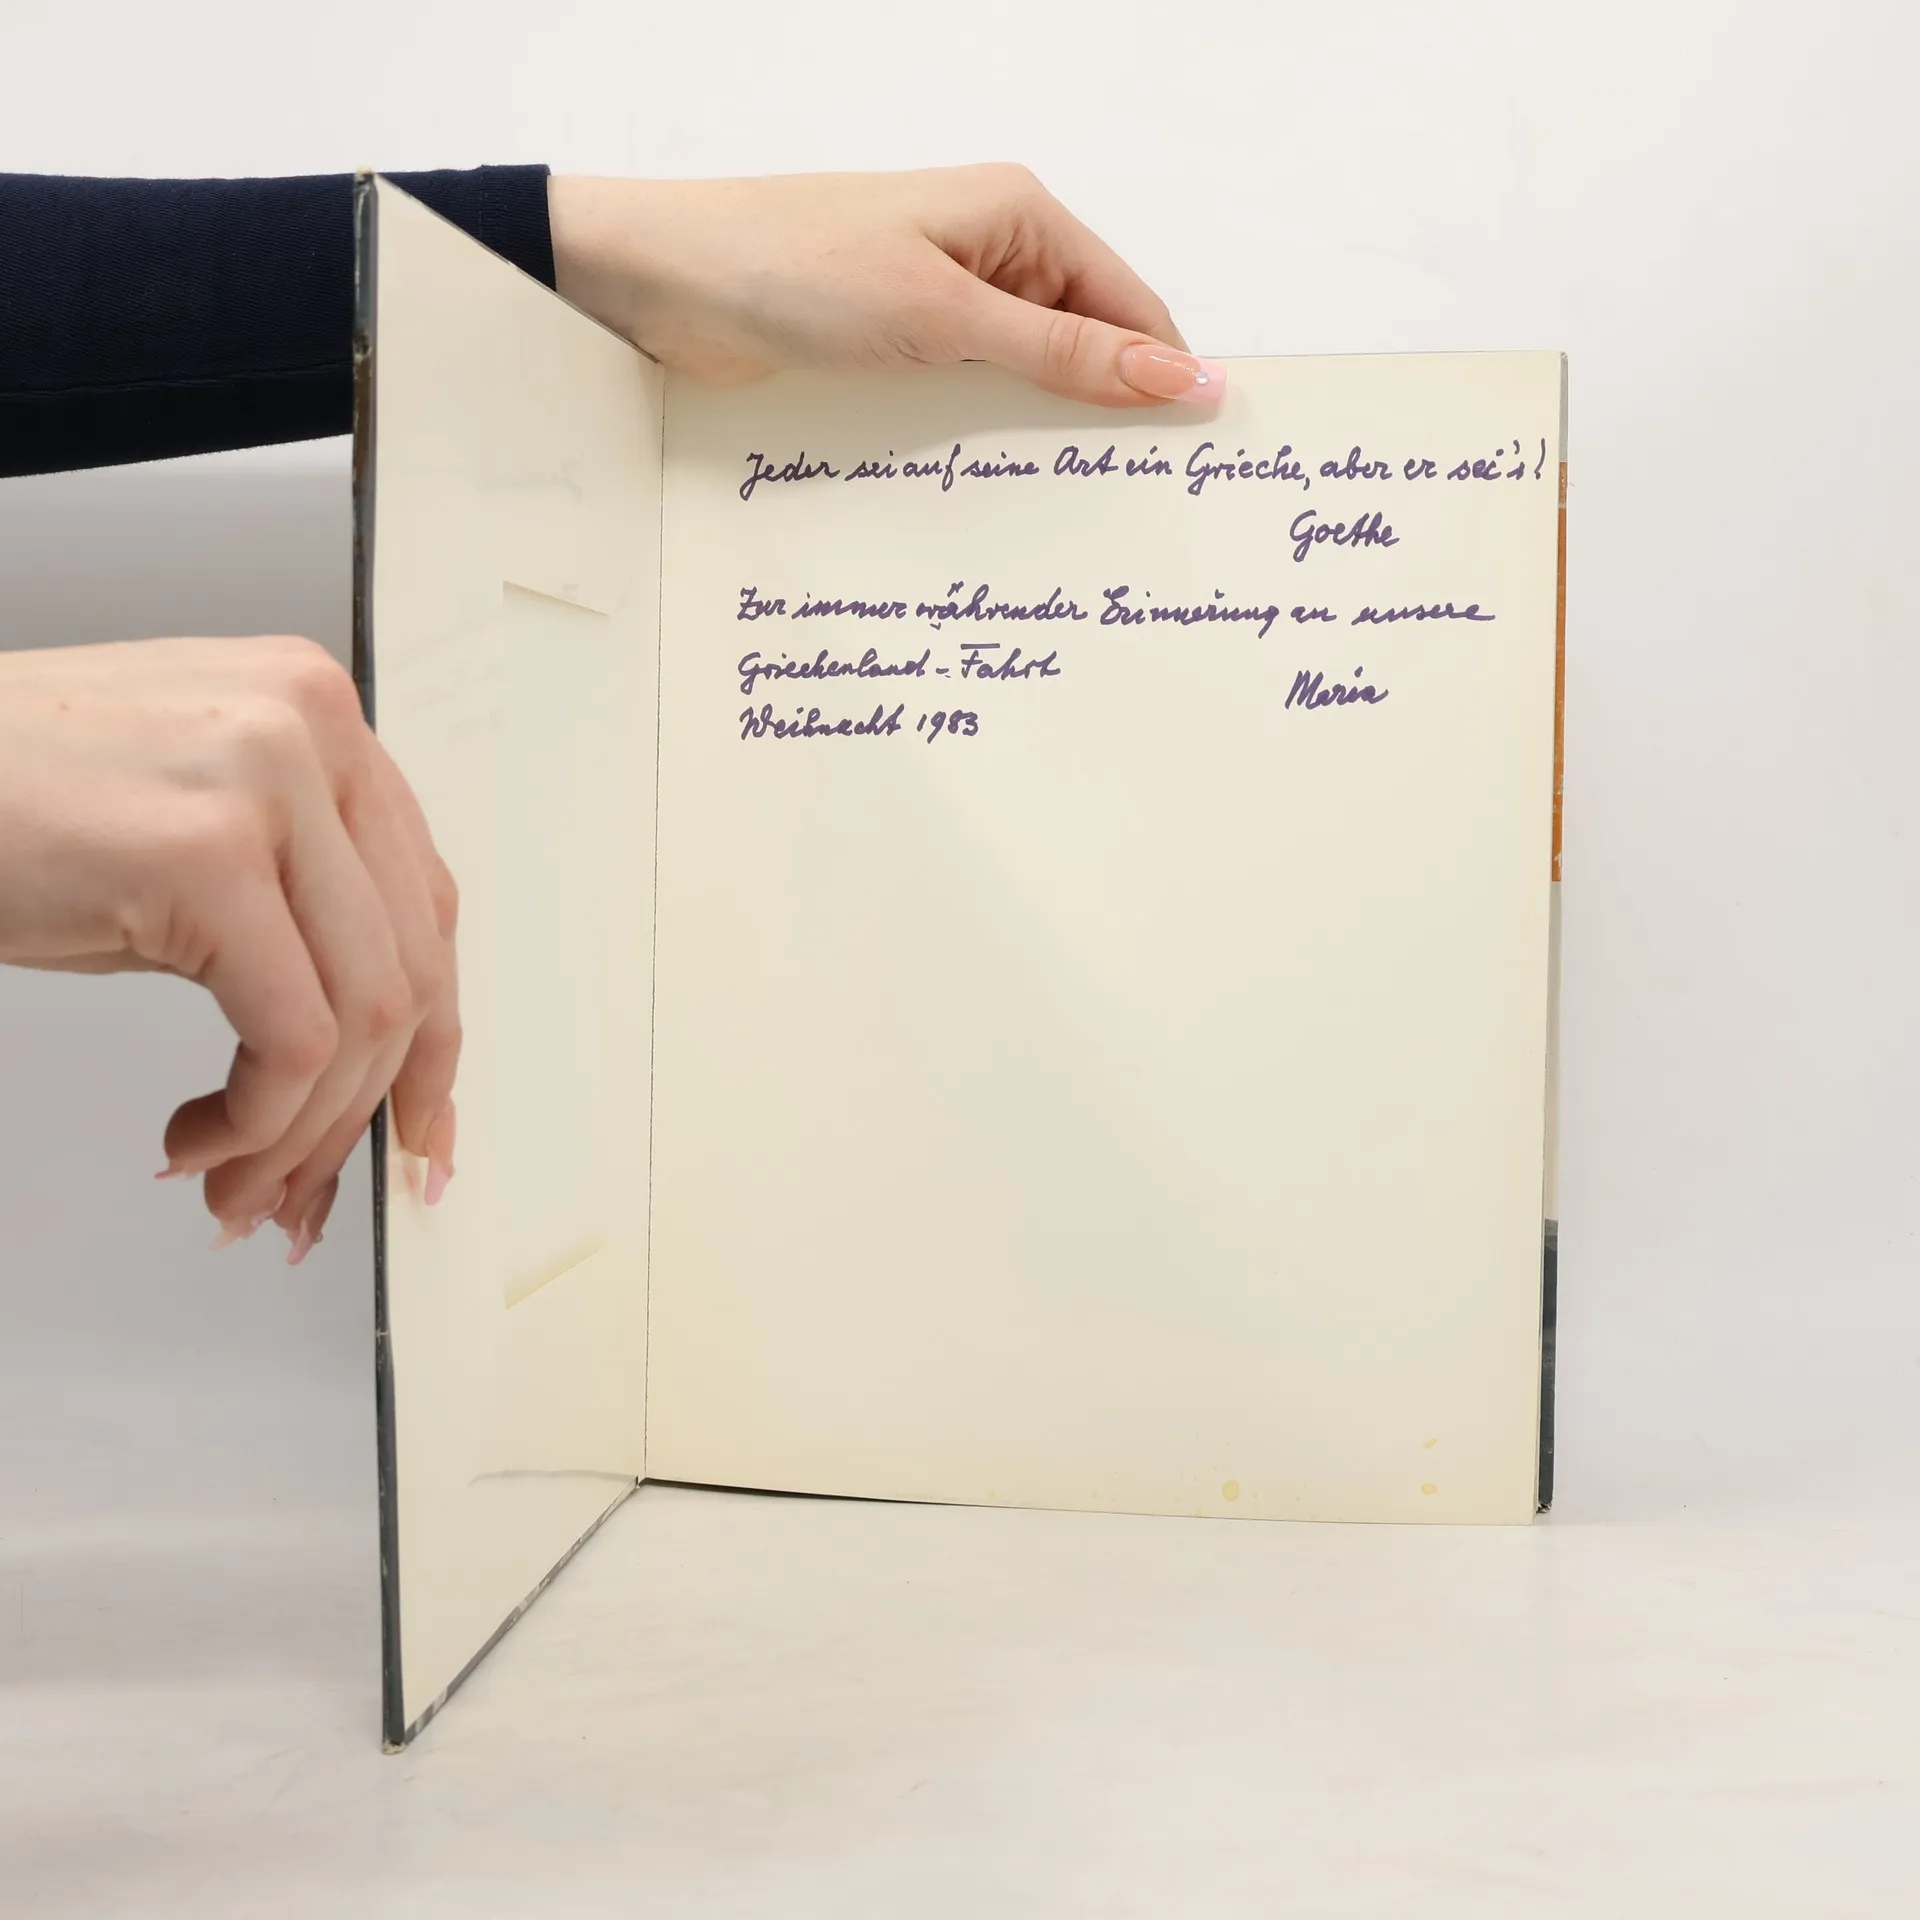 Jeder sei auf seine Art ein Grieche, aber er sei's!
Goethe
Zur immer währender Erinnerung an unsere
Griechenland-Fahrt
Maria
Weihnacht 1983